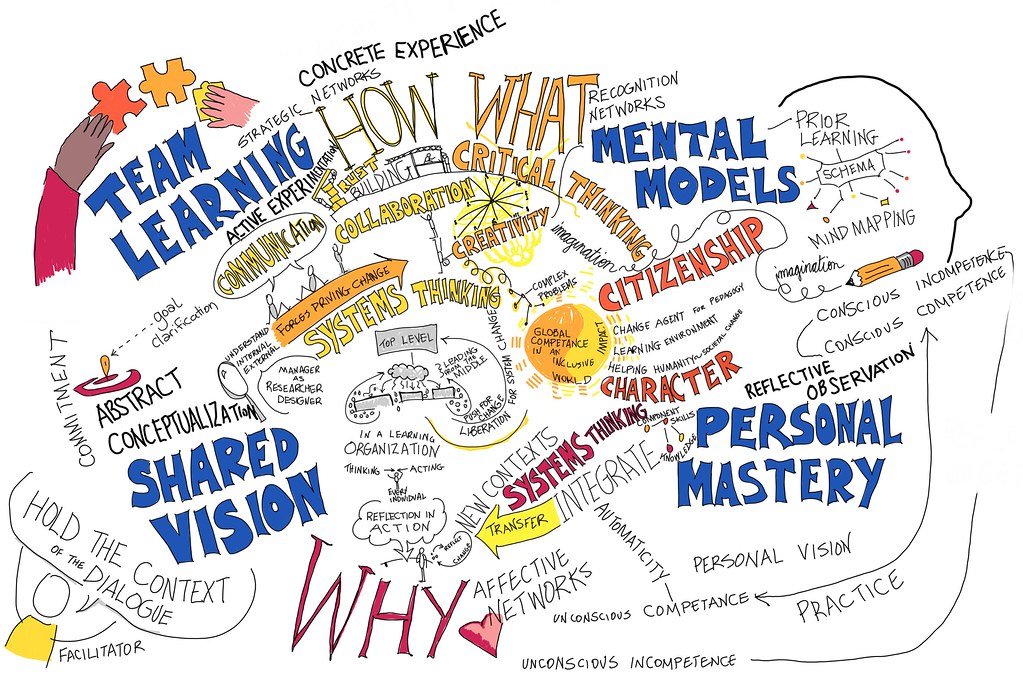 CONCRETE EXPERIENCE
STRATEGIC NETWORKS
HOW
WHAT
RECOGNITION
NETWORKS
TEAM
LEARNING
ACTIVE EXPERIMENTATION
TRUST
BUILDING
COLLABORATION
COMMUNICATION
CRITICAL THINKING
CREATIVITY
imagination
MENTAL
MODELS
PRIOR
LEARNING
SCHEMA
MIND MAPPING
CITIZENSHIP
imagination
CONSCIOUS INCOMPETENCE
CONSCIOUS COMPETENCE
goal
clarification
COMMITMENT
ABSTRACT
CONCEPTUALIZATION
UNDERSTAND
INTERNAL
EXTERNAL
FORCES DRIVING CHANGE
SYSTEMS THINKING
MANAGER
AS
RESEARCHER
DESIGNER
TOP LEVEL
LEADING
FROM THE
MIDDLE
PUSH FOR
CHANGE
LIBERATION
FOR SYSTEM CHANGE
IN A LEARNING
ORGANIZATION
THINKING
ACTING
EVERY
INDIVIDUAL
REFLECTION IN
ACTION
DO
REFLECT
CHANGE
COMPLEX
PROBLEMS
GLOBAL
COMPETENCE
IN AN
INCLUSIVE
WORLD
IMPACT
CHANGE AGENT FOR PEDAGOGY
LEARNING ENVIRONMENT
HELPING HUMANITY
SOCIETAL CHANGE
CHARACTER
REFLECTIVE
OBSERVATION
PERSONAL
MASTERY
SYSTEMS THINKING
COMPONENT
SKILLS
KNOWLEDGE
INTEGRATE
NEW CONTEXTS
TRANSFER
AUTOMATICITY
SHARED
VISION
HOLD THE CONTEXT
OF THE DIALOGUE
FACILITATOR
WHY
AFFECTIVE
NETWORKS
PERSONAL VISION
UNCONSCIOUS COMPETANCE
PRACTICE
UNCONSCIOUS INCOMPETENCE